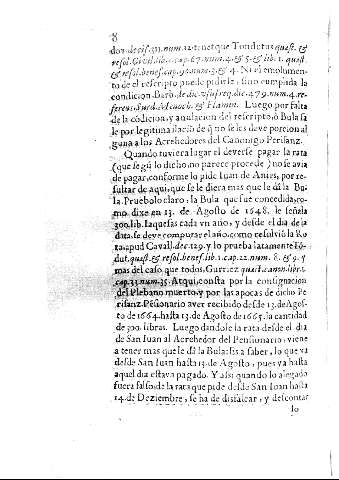 8
don. decis. 311. num. 12. tenet que Tondutus quæst. &
resol. Civil. lib. 1. cap. 67. num. 4. & 5. & lib. 1. quæst.
& resol. benef. cap. 90. num. 3. & 4. Ni el emolumen-
to de el rescripto puede pidirse, sino cumplada la
condicion Barb. de dic. usufreq. dic. 479. num. 4. re-
ferens, Surd. Menoch. & Flamin. Luego por falta
de la cōdicion, y anulacion del rescripto, ō Bula sa
le por legitima ilaciō de q̃ no se les deve porcion al
guna a los Acrehedores del Canonigo Perisanz.
Quando tuviera lugar el deverse pagar la rata
(que segũ lo dicho, no parece procede) no se avia
de pagar, conforme lo pide Iuan de Anies, por re-
sultar de aqui, que se le diera mas que le dà la Bu-
la. Pruebolo claro; la Bula que fue concedida, co-
mo dixe en 13. de Agosto de 1648. le señala
300. lib. Iaquesas cada vn año, y desde el dia de la
data, se deve computar el año, como resolviò la Ro
ta, apud Cavall. dec. 129. y lo prueba latamente Tō-
dut. quæst. & resol. benef. lib. 1. cap. 22. num. 8. & 9. y
mas del caso que todos, Gutiez quæst. canon. lib. 1.
cap. 33. num. 35. Atqui, consta por la consignacion
del Plebano muerto, y por las apocas de dicho Pe
risanz Pēsionario aver recibido desde 13. de Agos-
to de 1664. hasta 13. de Agosto de 1665. la cantidad
de 300. libras. Luego dandole la rata desde el dia
de San Iuan al Acrehedor del Pensionario, viene
a tener mas que le dà la Bula: Es a saber, lo que va
desde San Iuan hasta 13. de Agosto, pues ya hasta
aquel dia estava pagado. Y assi quando lo alegado
fuera falso, de la rata que pide desde San Iuan hasta
14. de Deziembre, se ha de disfalcar, y descontar
lo